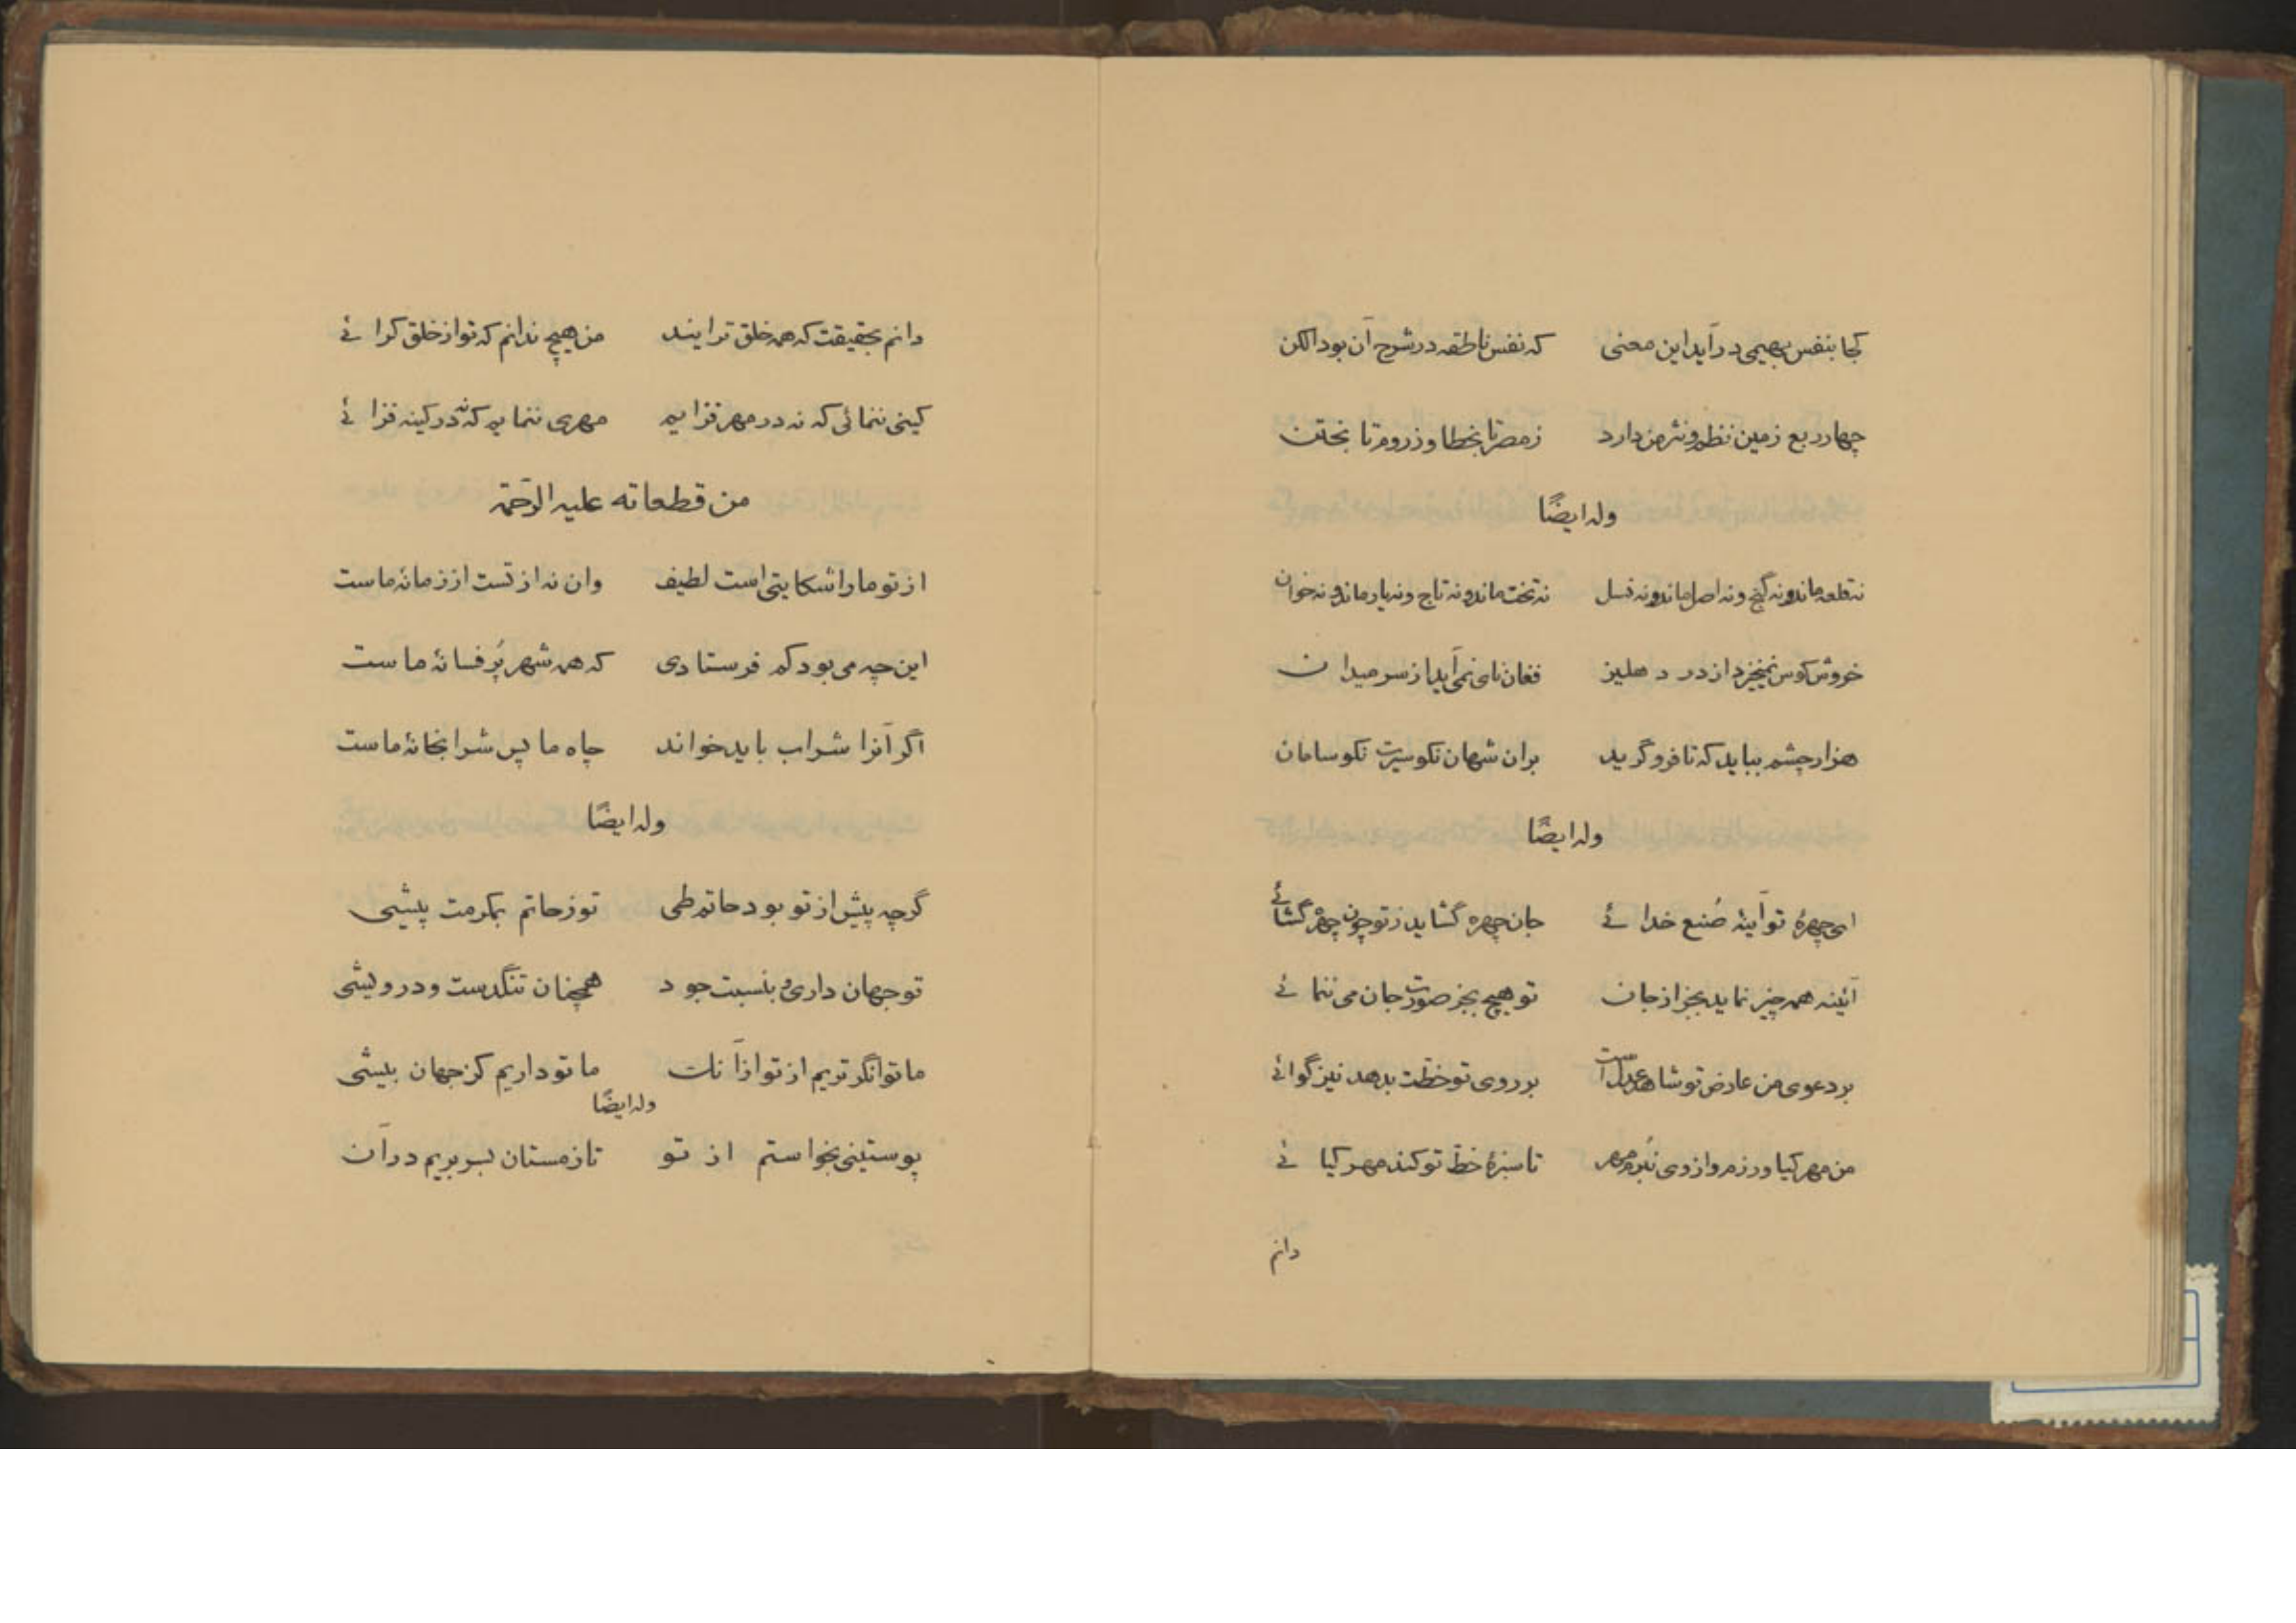 کجا بنفس بهیمی درآید این معنی که نفس ناطقه در شرح آن بود الکن
چهار ربع زمین نظم و نثر من دارد ز مصر تا بخطا و ز روم تا بختن
وله ایضًا
نه قلعه ماند و نه گنج و نه اصل ماند و نه نسل نه تخت ماند و نه تاج و نه یار ماند و نه خوان
خروش کوس نمیخیزد از در دهلیز فغان نای نمی‌آید از سر میدان
هزار چشم بباید که تا فرو گرید بران شهان نکو سیرت نکو سامان
وله ایضًا
ای چهرهٔ تو آینهٔ صُنع خدائے جان چهره گشاید ز تو چون چهره گشائے
آئینه همه چیز نماید بجز از جان تو هیچ بجز صورت جان می ننمائے
بر دعوی من عارض تو شاهد عدل است بر روی تو خطّت بدهد نیز گوائے
من مهر کیا ورزم و از وی نَبُرم مهر تا سبزهٔ خطّ تو کند مهر کیائے
دانم
دانم بحقیقت که همه خلق ترایند من هیچ ندانم که تو از خلق کرائے
کینی ننمائی که نه در مهر فزایم مهری ننمایم که نه در کینه فزائے
من قطعاته علیه الرّحمة
از تو ما را شکایتی است لطیف وان نه از تست از زمانهٔ ماست
این چه می بود کم فرستادی که همه شهر پُر فسانهٔ ماست
اگر آنرا شراب باید خواند چاه ما پس شرابخانهٔ ماست
وله ایضًا
گرچه پیش از تو بود حاتم طی تو ز حاتم بمکرمت پیشی
تو جهان داری و بنسبت جود همچنان تنگدست و درویشی
ما توانگرتریم از تو ازآنک ما تو داریم کز جهان بیشی
وله ایضًا
پوستینی بخواستم از تو تا زمستان بسر بریم درآن